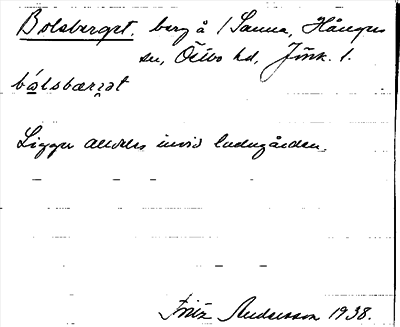 Bolsberget, berg å 1 Sanna, Hånger
sn, Östbo hd, Jönk. l.
bólsbærjət
Ligger alldeles invid ladugården.
Fritz Andersson 1938.